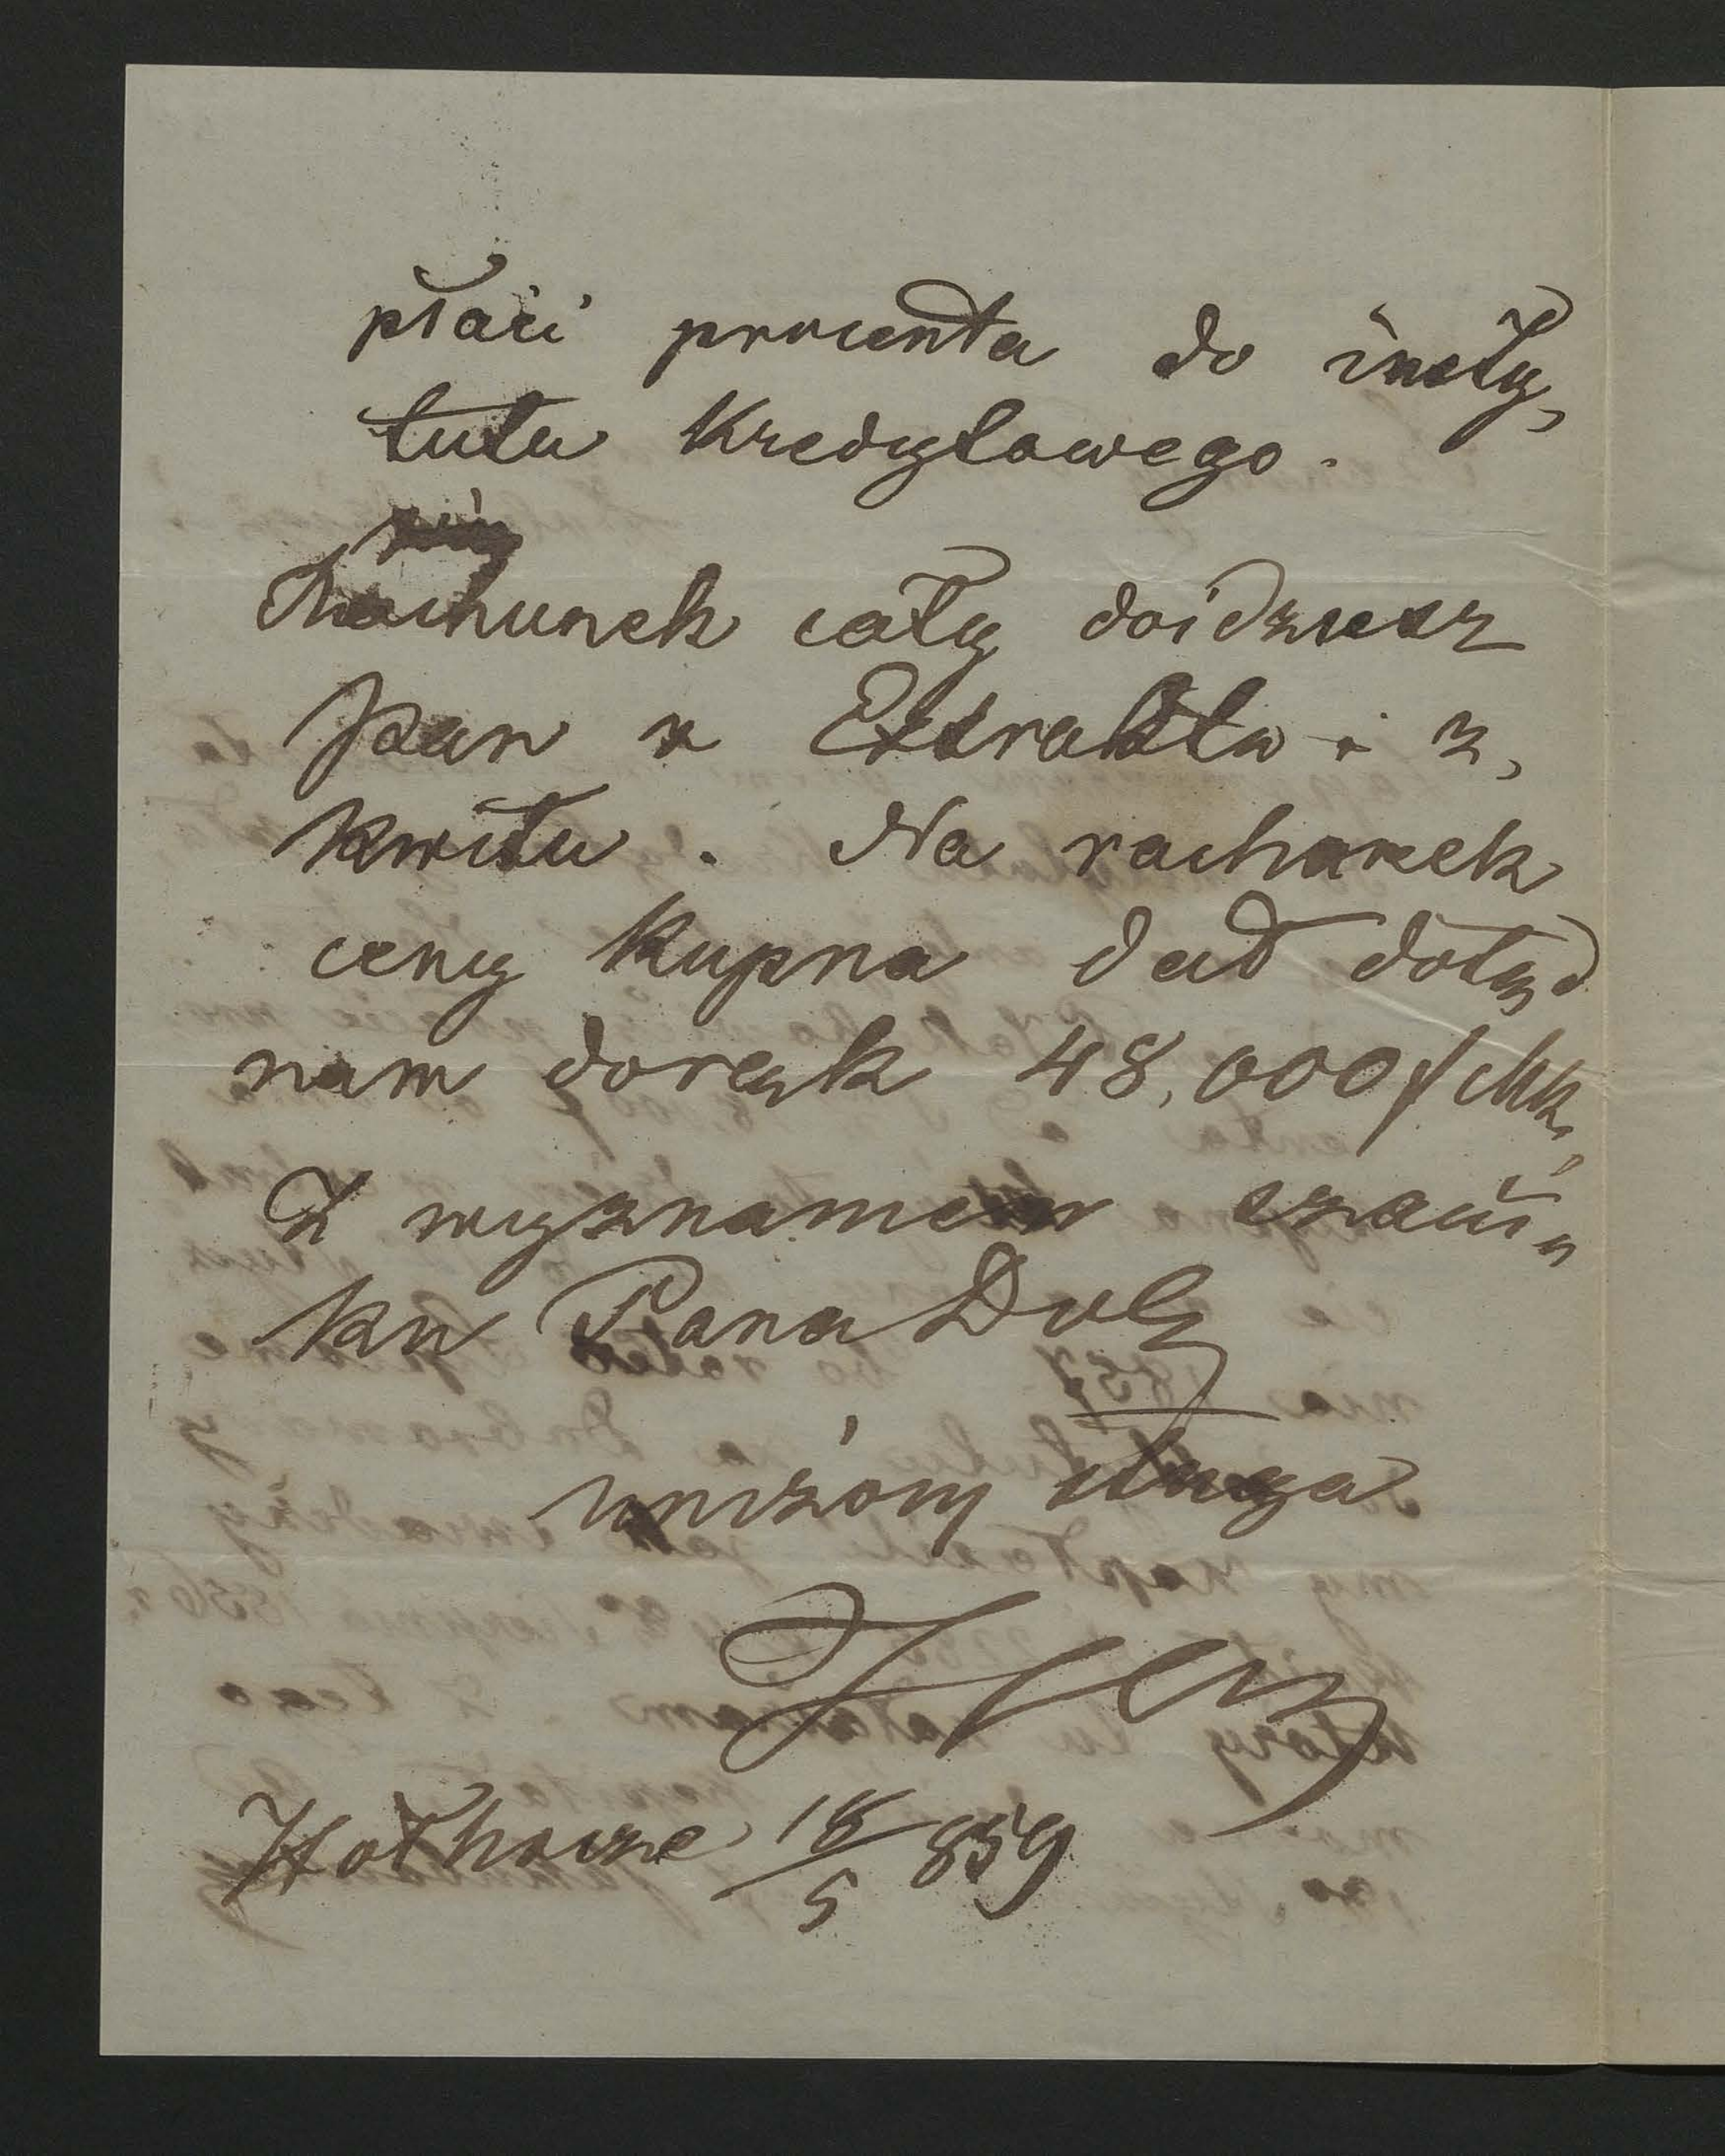 płaci procenta do insty,
tutu Kredytowego.
Rachunek cały doidziesz
Pan z Extraktu i z,
Kwitu. Na rachunek
ceny Kupna dał dotąd
nam doręk 48,000 f Mk,
Z wyznaniem szacun„
ku Pana Dob
uniżony sługa
Hołhocze 18/5 859